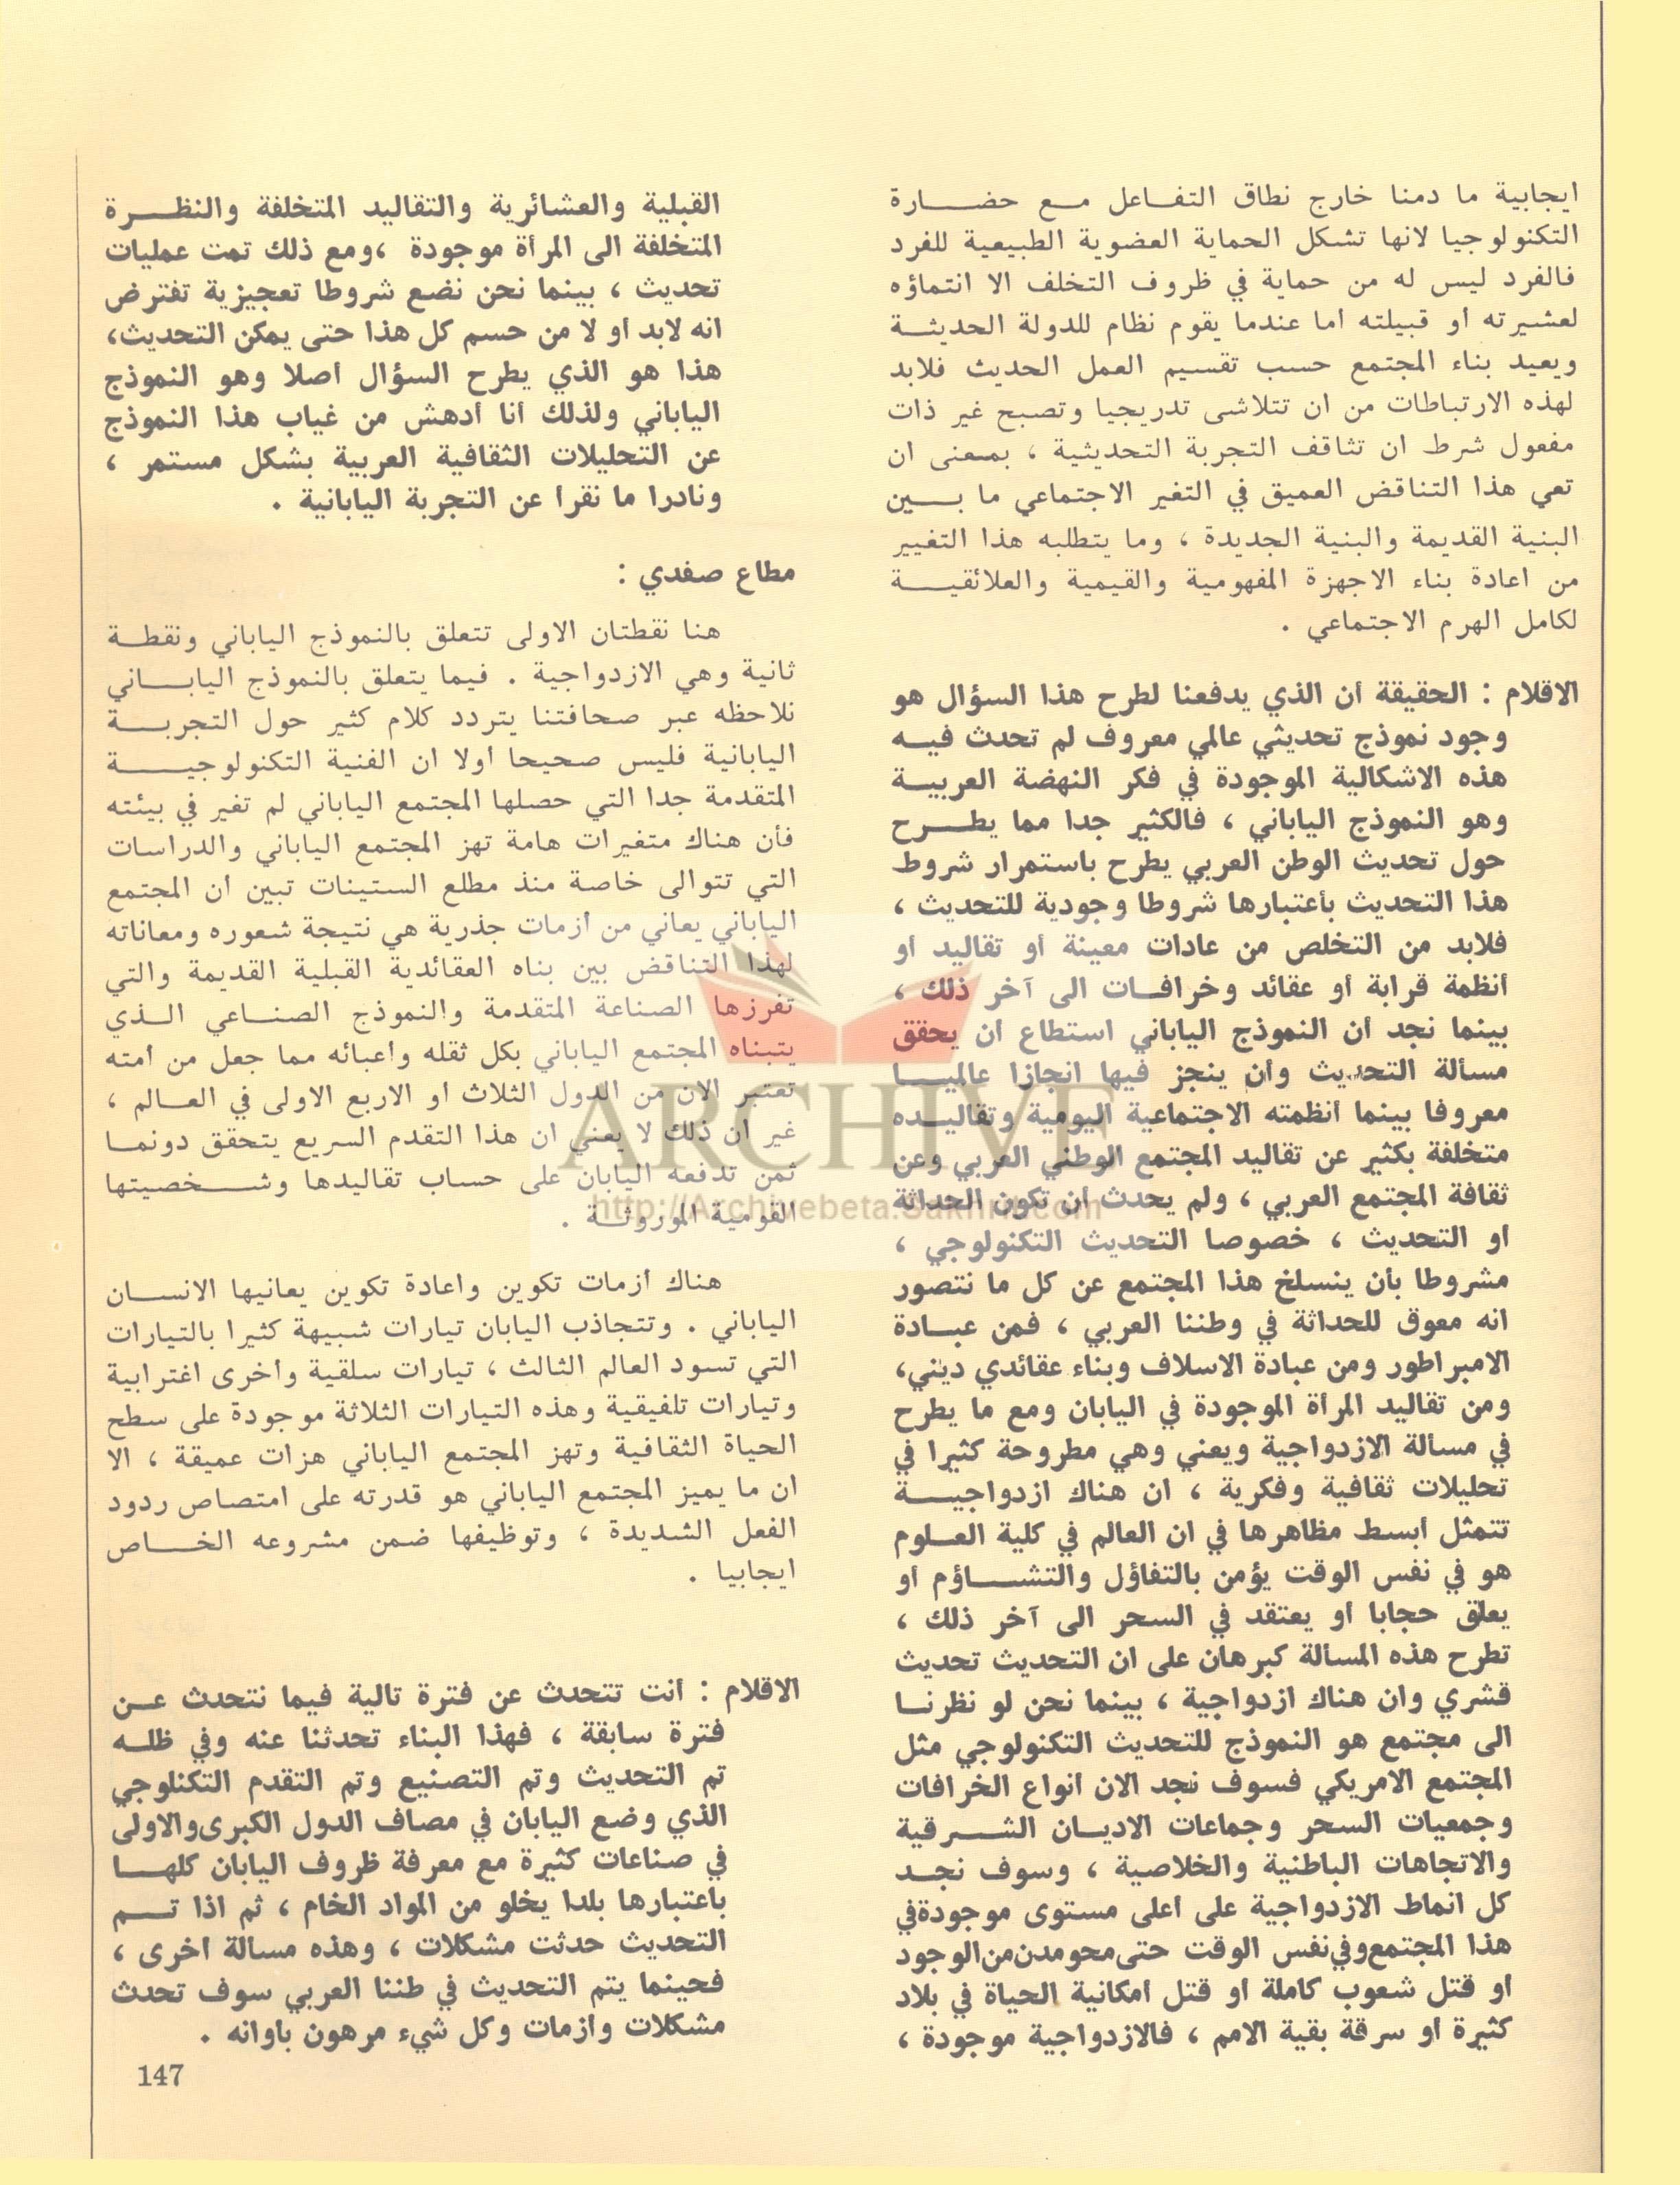 ايجابية ما دمنا خارج نطاق التفاعل مع حضارة
التكنولوجيا لانها تشكل الحماية العضوية الطبيعية للفرد
فالفرد ليس له من حماية في ظروف التخلف الا انتماؤه
لعشيرته أو قبيلته أما عندما يقوم نظام للدولة الحديثة
ويعيد بناء المجتمع حسب تقسيم العمل الحديث فلابد
لهذه الارتباطات من ان تتلاشى تدريجيا وتصبح غير ذات
مفعول شرط ان تثاقف التجربة التحديثية ، بمعنى ان
تعي هذا التناقض العميق في التغير الاجتماعي ما بين
البنية القديمة والبنية الجديدة ، وما يتطلبه هذا التغيير
من اعادة بناء الاجهزة المفهومية والقيمية والعلائقية
لكامل الهرم الاجتماعي .
الاقلام : الحقيقة أن الذي يدفعنا لطرح هذا السؤال هو
وجود نموذج تحديثي عالمي معروف لم تحدث فيه
هذه الاشكالية الموجودة في فكر النهضة العربية
وهو النموذج الياباني ، فالكثير جدا مما يطرح
حول تحديث الوطن العربي يطرح باستمرار شروط
هذا التحديث بأعتبارها شروطا وجودية للتحديث ،
فلابد من التخلص من عادات معينة أو تقاليد أو
أنظمة قرابة أو عقائد وخرافات الى آخر ذلك ،
بينما نجد أن النموذج الياباني استطاع ان يحقق
مسألة التحديث وأن ينجز فيها انجازا عالميا
معروفا بينما أنظمته الاجتماعية اليومية وتقاليده
متخلفة بكثير عن تقاليد المجتمع الوطني العربي وعن
ثقافة المجتمع العربي ، ولم يحدث أن تكون الحداثة
او التحديث ، خصوصا التحديث التكنولوجي ،
مشروطا بأن ينسلخ هذا المجتمع عن كل ما نتصور
انه معوق للحداثة في وطننا العربي ، فمن عبادة
الامبراطور ومن عبادة الاسلاف وبناء عقائدي ديني،
ومن تقاليد المرأة الموجودة في اليابان ومع ما يطرح
في مسألة الازدواجية ويعني وهي مطروحة كثيرا في
تحليلات ثقافية وفكرية ، ان هناك ازدواجية
تتمثل أبسط مظاهرها في ان العالم في كلية العلوم
هو في نفس الوقت يؤمن بالتفاؤل والتشاؤم أو
يعلق حجابا أو يعتقد في السحر الى آخر ذلك ،
تطرح هذه المسألة كبرهان على ان التحديث تحديث
قشري وان هناك ازدواجية ، بينما نحن لو نظرنا
الى مجتمع هو النموذج للتحديث التكنولوجي مثل
المجتمع الامريكي فسوف نجد الان أنواع الخرافات
وجمعيات السحر وجماعات الاديان الشرقية
والاتجاهات الباطنية والخلاصية ، وسوف نجد
كل انماط الازدواجية على أعلى مستوى موجودة في
هذا المجتمع وفي نفس الوقت حتى محو مدن من الوجود
او قتل شعوب كاملة او قتل امكانية الحياة في بلاد
كثيرة او سرقة بقية الامم ، فالازدواجية موجودة ،
القبلية والعشائرية والتقاليد المتخلفة والنظرة
المتخلفة الى المرأة موجودة ،ومع ذلك تمت عمليات
تحديث ، بينما نحن نضع شروطا تعجيزية تفترض
انه لابد أو لا من حسم كل هذا حتى يمكن التحديث،
هذا هو الذي يطرح السؤال أصلا وهو النموذج
الياباني ولذلك أنا أدهش من غياب هذا النموذج
عن التحليلات الثقافية العربية بشكل مستمر ،
ونادرا ما نقرأ عن التجربة اليابانية .
مطاع صفدي :
هنا نقطتان الاولى تتعلق بالنموذج الياباني ونقطة
ثانية وهي الازدواجية . فيما يتعلق بالنموذج الياباني
نلاحظه عبر صحافتنا يتردد كلام كثير حول التجربة
اليابانية فليس صحيحا أولا ان الفنية التكنولوجية
المتقدمة جدا التي حصلها المجتمع الياباني لم تغير في بيئته
فأن هناك متغيرات هامة تهز المجتمع الياباني والدراسات
التي تتوالى خاصة منذ مطلع الستينات تبين ان المجتمع
الياباني يعاني من أزمات جذرية هي نتيجة شعوره ومعاناته
لهذا التناقض بين بناه العقائدية القبلية القديمة والتي
تفرزها الصناعة المتقدمة والنموذج الصناعي الذي
يتبناه المجتمع الياباني بكل ثقله وأعبائه مما جعل من أمته
تعتبر الان من الدول الثلاث او الاربع الاولى في العالم ،
غير ان ذلك لا يعني ان هذا التقدم السريع يتحقق دونما
ثمن تدفعه اليابان على حساب تقاليدها وشخصيتها
القومية الموروثة .
هناك أزمات تكوين واعادة تكوين يعانيها الانسان
الياباني . وتتجاذب اليابان تيارات شبيهة كثيرا بالتيارات
التي تسود العالم الثالث ، تيارات سلفية وأخرى اغترابية
وتيارات تلفيقية وهذه التيارات الثلاثة موجودة على سطح
الحياة الثقافية وتهز المجتمع الياباني هزات عميقة ، الا
ان ما يميز المجتمع الياباني هو قدرته على امتصاص ردود
الفعل الشديدة ، وتوظيفها ضمن مشروعه الخاص
ايجابيا .
الاقلام : أنت تتحدث عن فترة تالية فيما نتحدث عن
فترة سابقة ، فهذا البناء تحدثنا عنه وفي ظله
تم التحديث وتم التصنيع وتم التقدم التكنلوجي
الذي وضع اليابان في مصاف الدول الكبرى والاولى
في صناعات كثيرة مع معرفة ظروف اليابان كلها
باعتبارها بلدا يخلو من المواد الخام ، ثم اذا تم
التحديث حدثت مشكلات ، وهذه مسالة أخرى ،
فحينما يتم التحديث في طننا العربي سوف تحدث
مشكلات وأزمات وكل شيء مرهون باوانه .
147
ARCHIVE
http://Archivebeta.Sakhrit.com